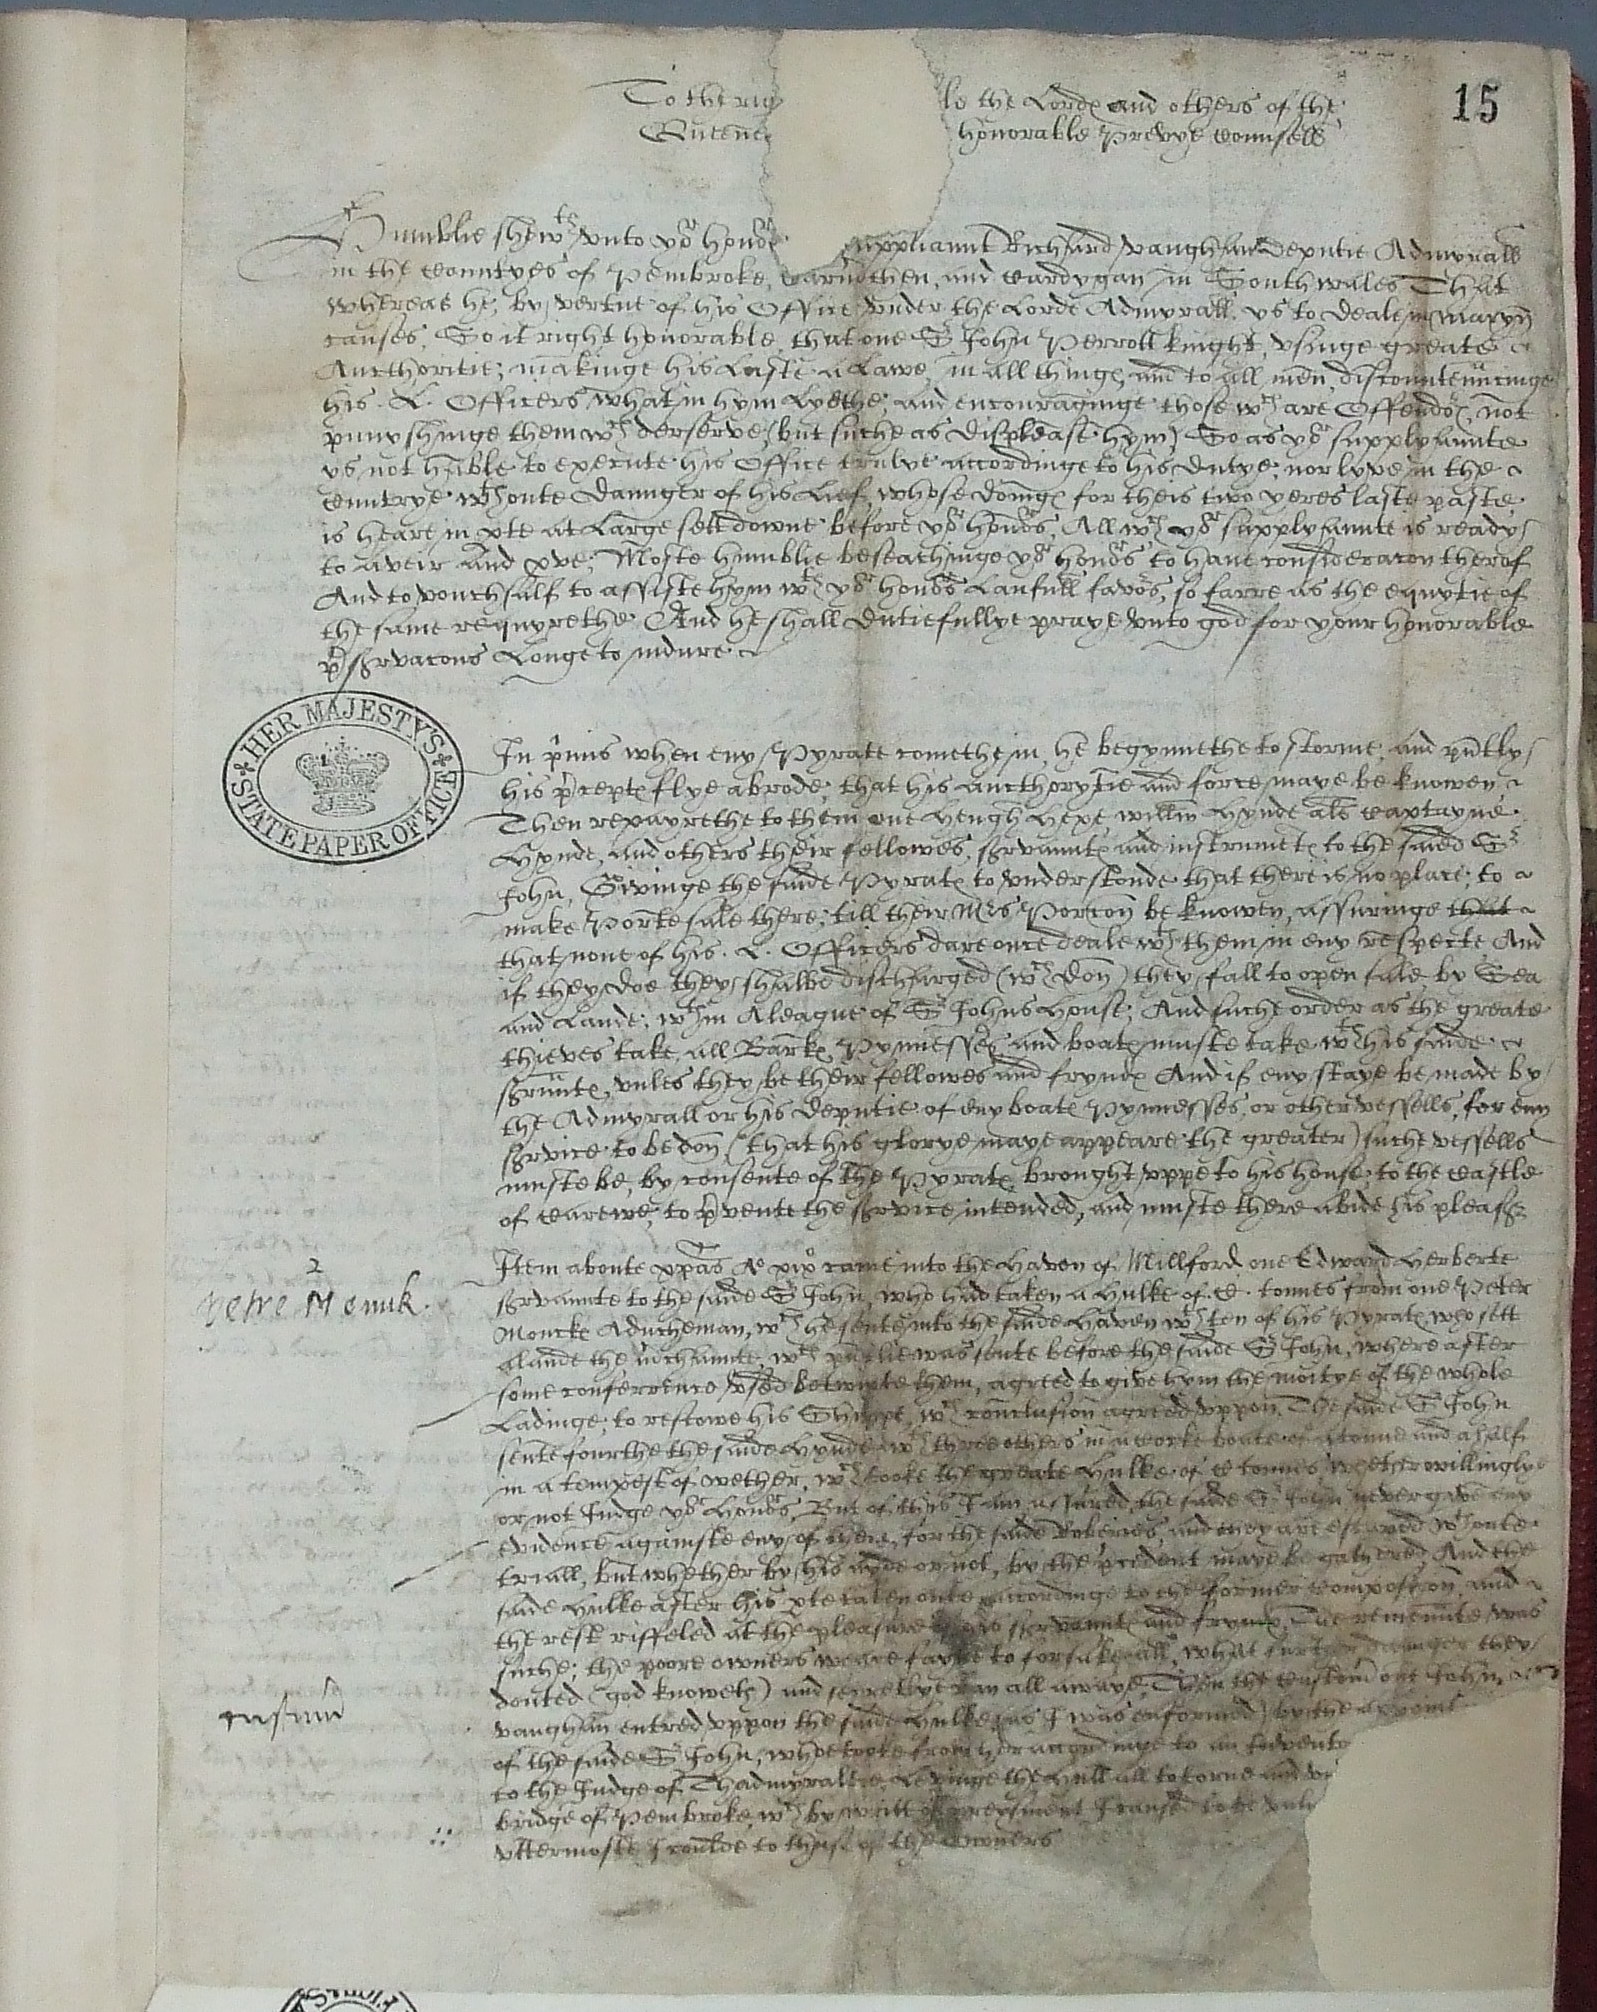 15
To the rig le the Lordes and others of the
Queene honorable Prevye Counsell
Humblie shewth unto yor honors uppliaunt Richard Vaughan Deputie Admyrall
in the Countyes of Pembroke, Carmthen, and Cardygan in South wales That
whereas he, by vertue of his Office under the Lorde Admyrall, ys to deale in maryn
causes, So it right honorable, that one Sr John Perrott knight, usinge greate
Aucthoritie; makinge his Luste a Lawe, in all thinges, and to all men, discountenncinge
his . L . Officers what in hym Lyethe; and encouraginge those wch are Offendors, not
punyshinge them wch derserve, (but suche as displease hym) So as yor supplyaunte
ys not hable to execute his Office trulye accordinge to his dutye, nor lyve in the
Cuntrye wthoute daunger of his Lief, whose doinges for theis two yeres laste paste
is heare in pte at Large sett downe before yor honors, All wch yor supplyaunte is ready
to aveir and pve; Moste humblie beseachinge yor honors to have consideracon therof
And to vouchsalf to assiste hym wth yor honors Laufull favors, so farre as the equytie of
the same requyrethe And he shall dutiefullye praye unto god for your honorable
pservacons Longe to indure
HER MAJESTY'S
STATE PAPER OFFICE
In primis when eny Pyrate comethe in, he begynnethe to storme, and pntly
his preceptes flye abrode, that his aucthorytie and force maye be knowen
Then repayrethe to them one Heugh Hexe willm Hynde als Captayne
Hynde, and others their fellowes, servauntes and instrumetes to the saied Sr
John, Givinge the saide Pyrates to understonde that there is no place, to
make Porte sale there; till their Mrs Porcon be knowen, assuringe that
that none of his . L . Officers dare once deale wth them in eny respecte And
if they doe they shalbe discharged (wch don) they fall to open sale, by Sea
and Lande; wthin a league of Sr Johns House; And suche order as the greate
thieves take, all Barkes, Pynnesses, and boates muste take wth his saide
servntes, unles they be their fellowes and fryndes And if eny staye be made by
the Admyrall or his deputie of eny boates Pynnesses, or other vessells, for eny
service to be don, (that his glorye maye appeare the greater) suche vessells
muste be, by consente of the Pyrates brought uppe to his house, to the Castle
of Carewe, to prvente the service intended, and muste there abide his pleasr
2
Petre Monik.
Item aboute xpas Ao xixo came into the Haven of Millford one Edward Herberte
servaunte to the saide Sr John, who had taken a Hulke of . C . tonnes from one Peter
Moncke a ducheman, wch he sente into the saide Haven wth ten of his Pyrates, who sett
alande the mchaunte, wch pntlie was sente before the saide Sr John, where after
some conferrence used betwixte them, agreed to give hym the moitye of the whole
Ladinge, to restowe his Shippe, wch conclusion agreed uppon, The saide Sr John
sente fourthe the saide Hynde wth three others in a Corke boate of a tonne and a half
in a tempest of wether, wch tooke the greate Hulke of C tonnes, whether willinglye
or not Judge yor Honors, But of this I am assured, the saide Sr John never gave eny
evidence againste eny of them, for the saide Roberies, and they are escaped wthoute
triall, but whether by his ayde or not, by the prcedent maye be gathered And the
saide Hulke after his pte taken oute accordinge to the former Composicon, and
the rest riffeled at the pleasure of his servauntes and fryndes, The remennte was
suche; the poore owners weare fayne to forsake all, what further daunger they
douted (god knoweth) and secretlye Ran all awaye, Then the Custom one John
Custum
Vaughan entred uppon the saide Hulke (as I was enformed) by the appoint
of the saide Sr John, who tooke from her accordinge to an Invento
to the Judge of Thadmyraltie, Levinge the Hull all to torne and
bridge of Pembroke, wch by writt of preysment I caused to be
uttermoste I coulde to thuse of the owners